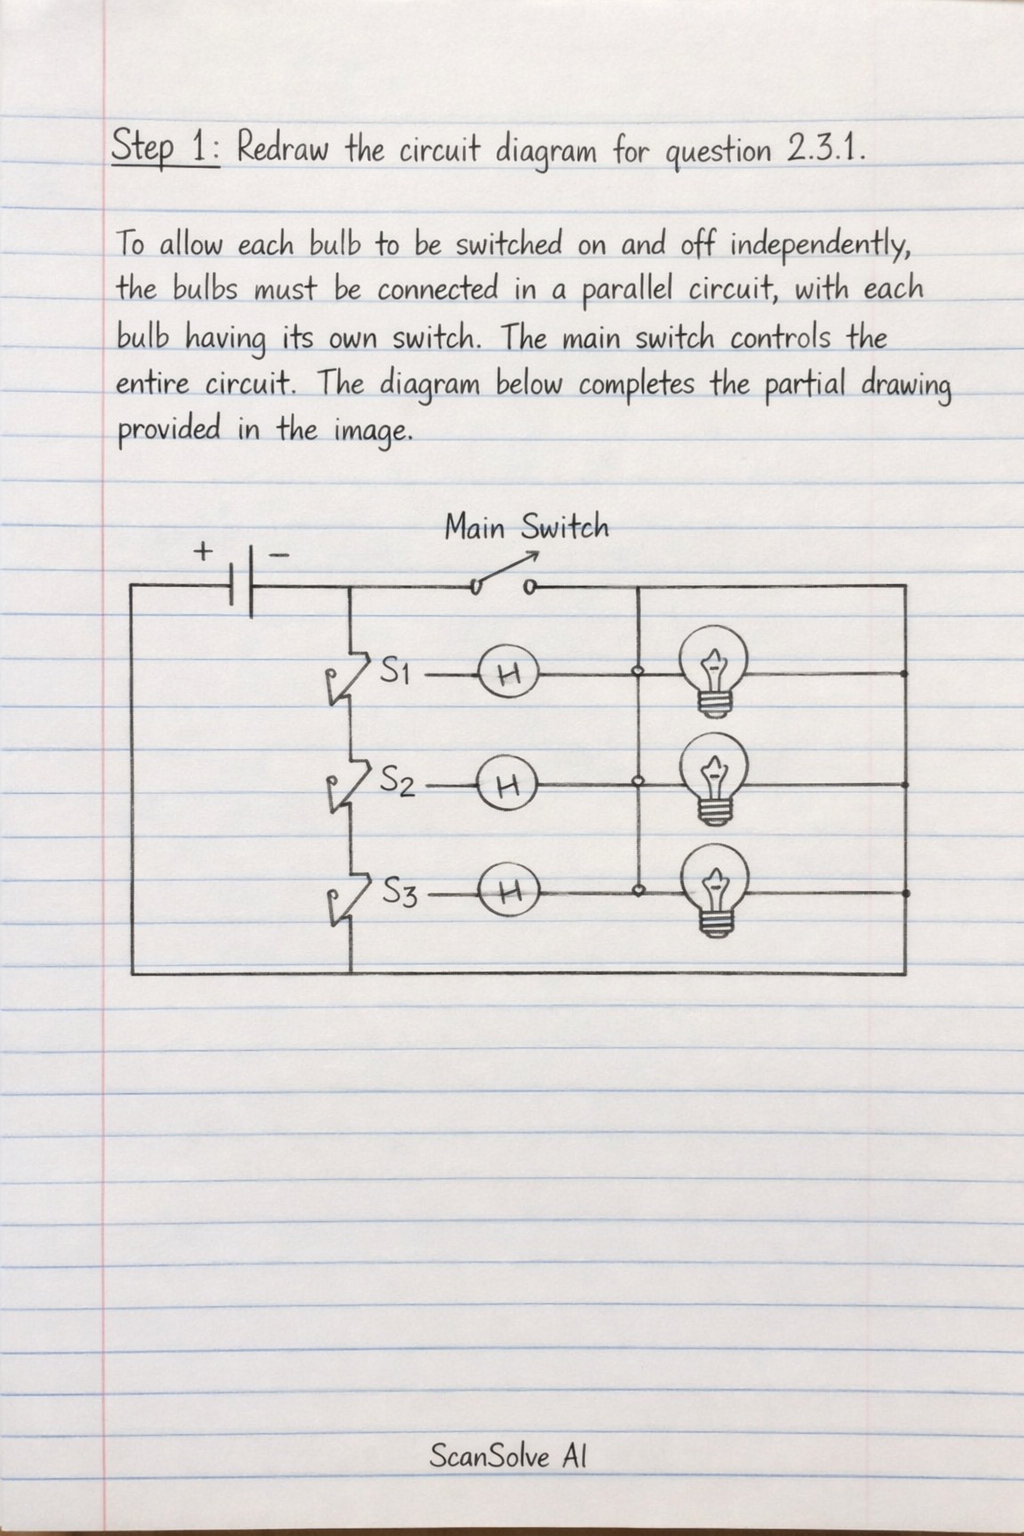 Step 1: Redraw the circuit diagram for question 2.3.1.
To allow each bulb to be switched on and off independently,
the bulbs must be connected in a parallel circuit, with each
bulb having its own switch. The main switch controls the
entire circuit. The diagram below completes the partial drawing
provided in the image.
Main Switch
+ −
S1 H
S2 H
S3 H
ScanSolve AI